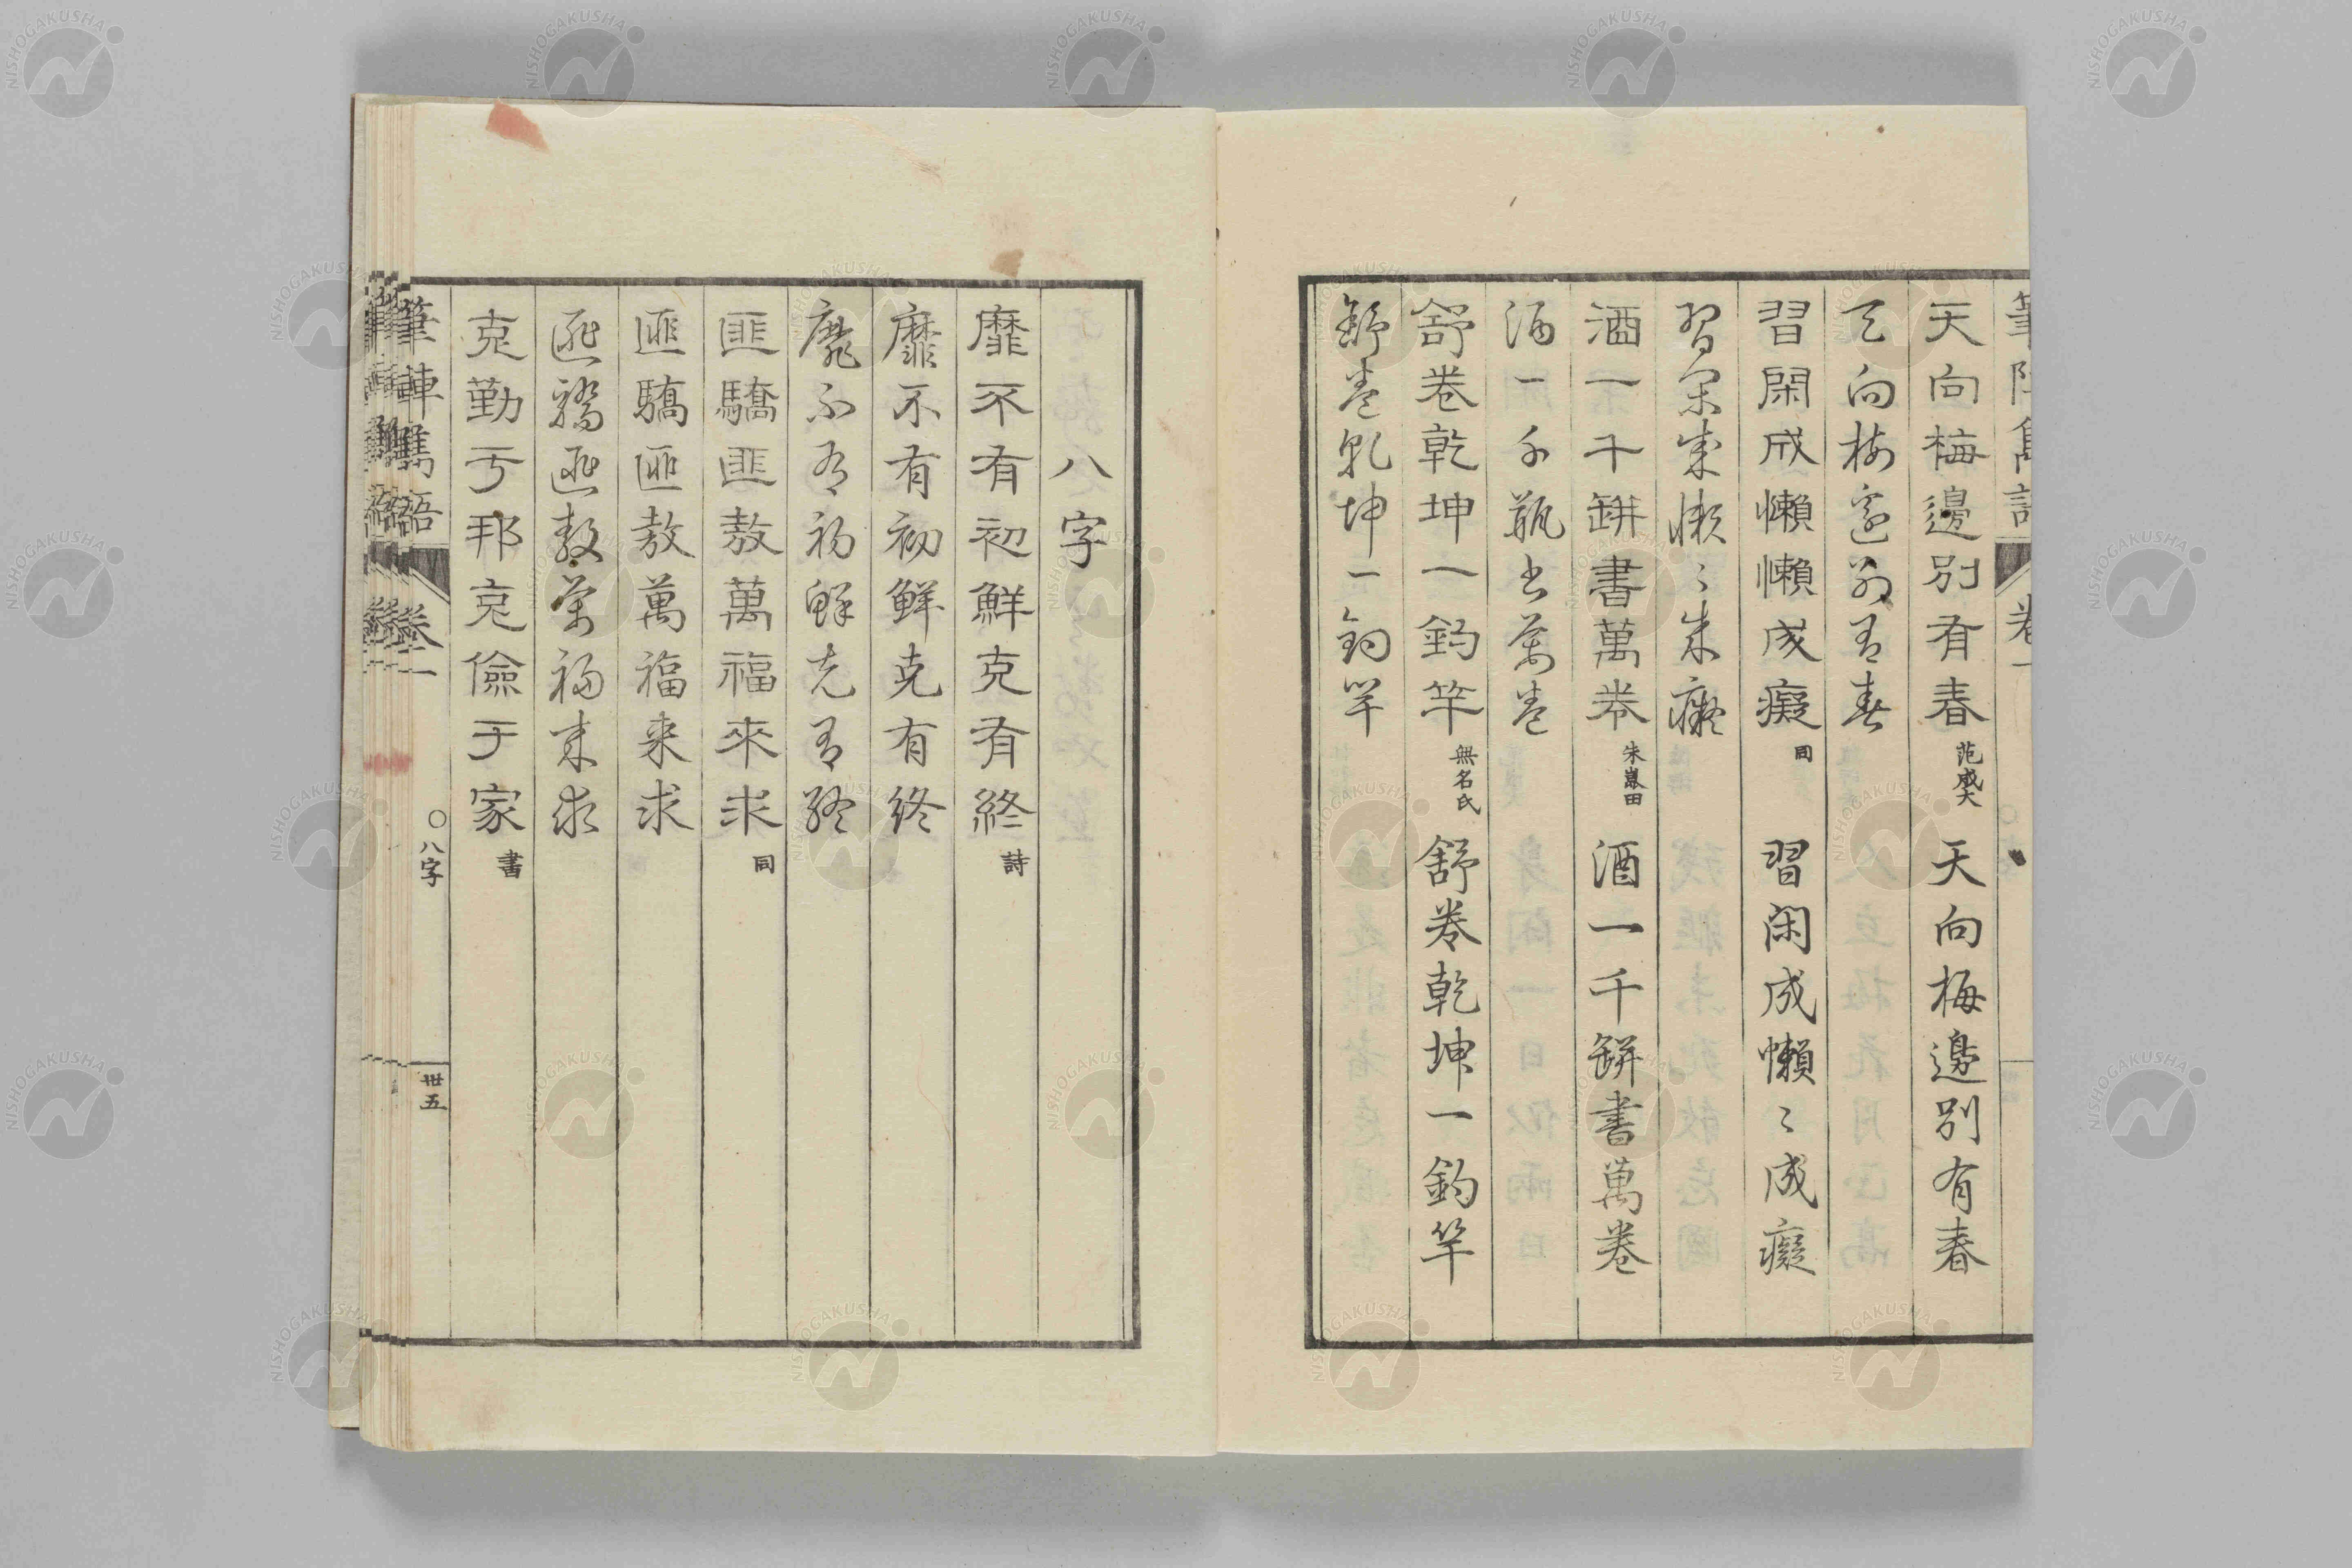 筆陣雋語 卷一
天向梅邊別有春 范盛大 天向梅邊別有春
天向梅邊別有春
習閑成懶懶成癡 同 習閑成懶〻成癡
習閑成懶〻成癡
酒一千缾書萬卷 朱嵩田 酒一千缾書萬卷
酒一千瓶書萬卷
舒卷乾坤一釣竿 無名氏 舒卷乾坤一釣竿
舒卷乾坤一釣竿
八字
靡不有初鮮克有終 詩
靡不有初鮮克有終
靡不有初鮮克有終
匪驕匪敖萬福來求 同
匪驕匪敖萬福来求
匪驕匪敖萬福来求
克勤于邦克儉于家 書
筆陣雋語 卷一 〇八字 卅五
NISHOGAKUSHA